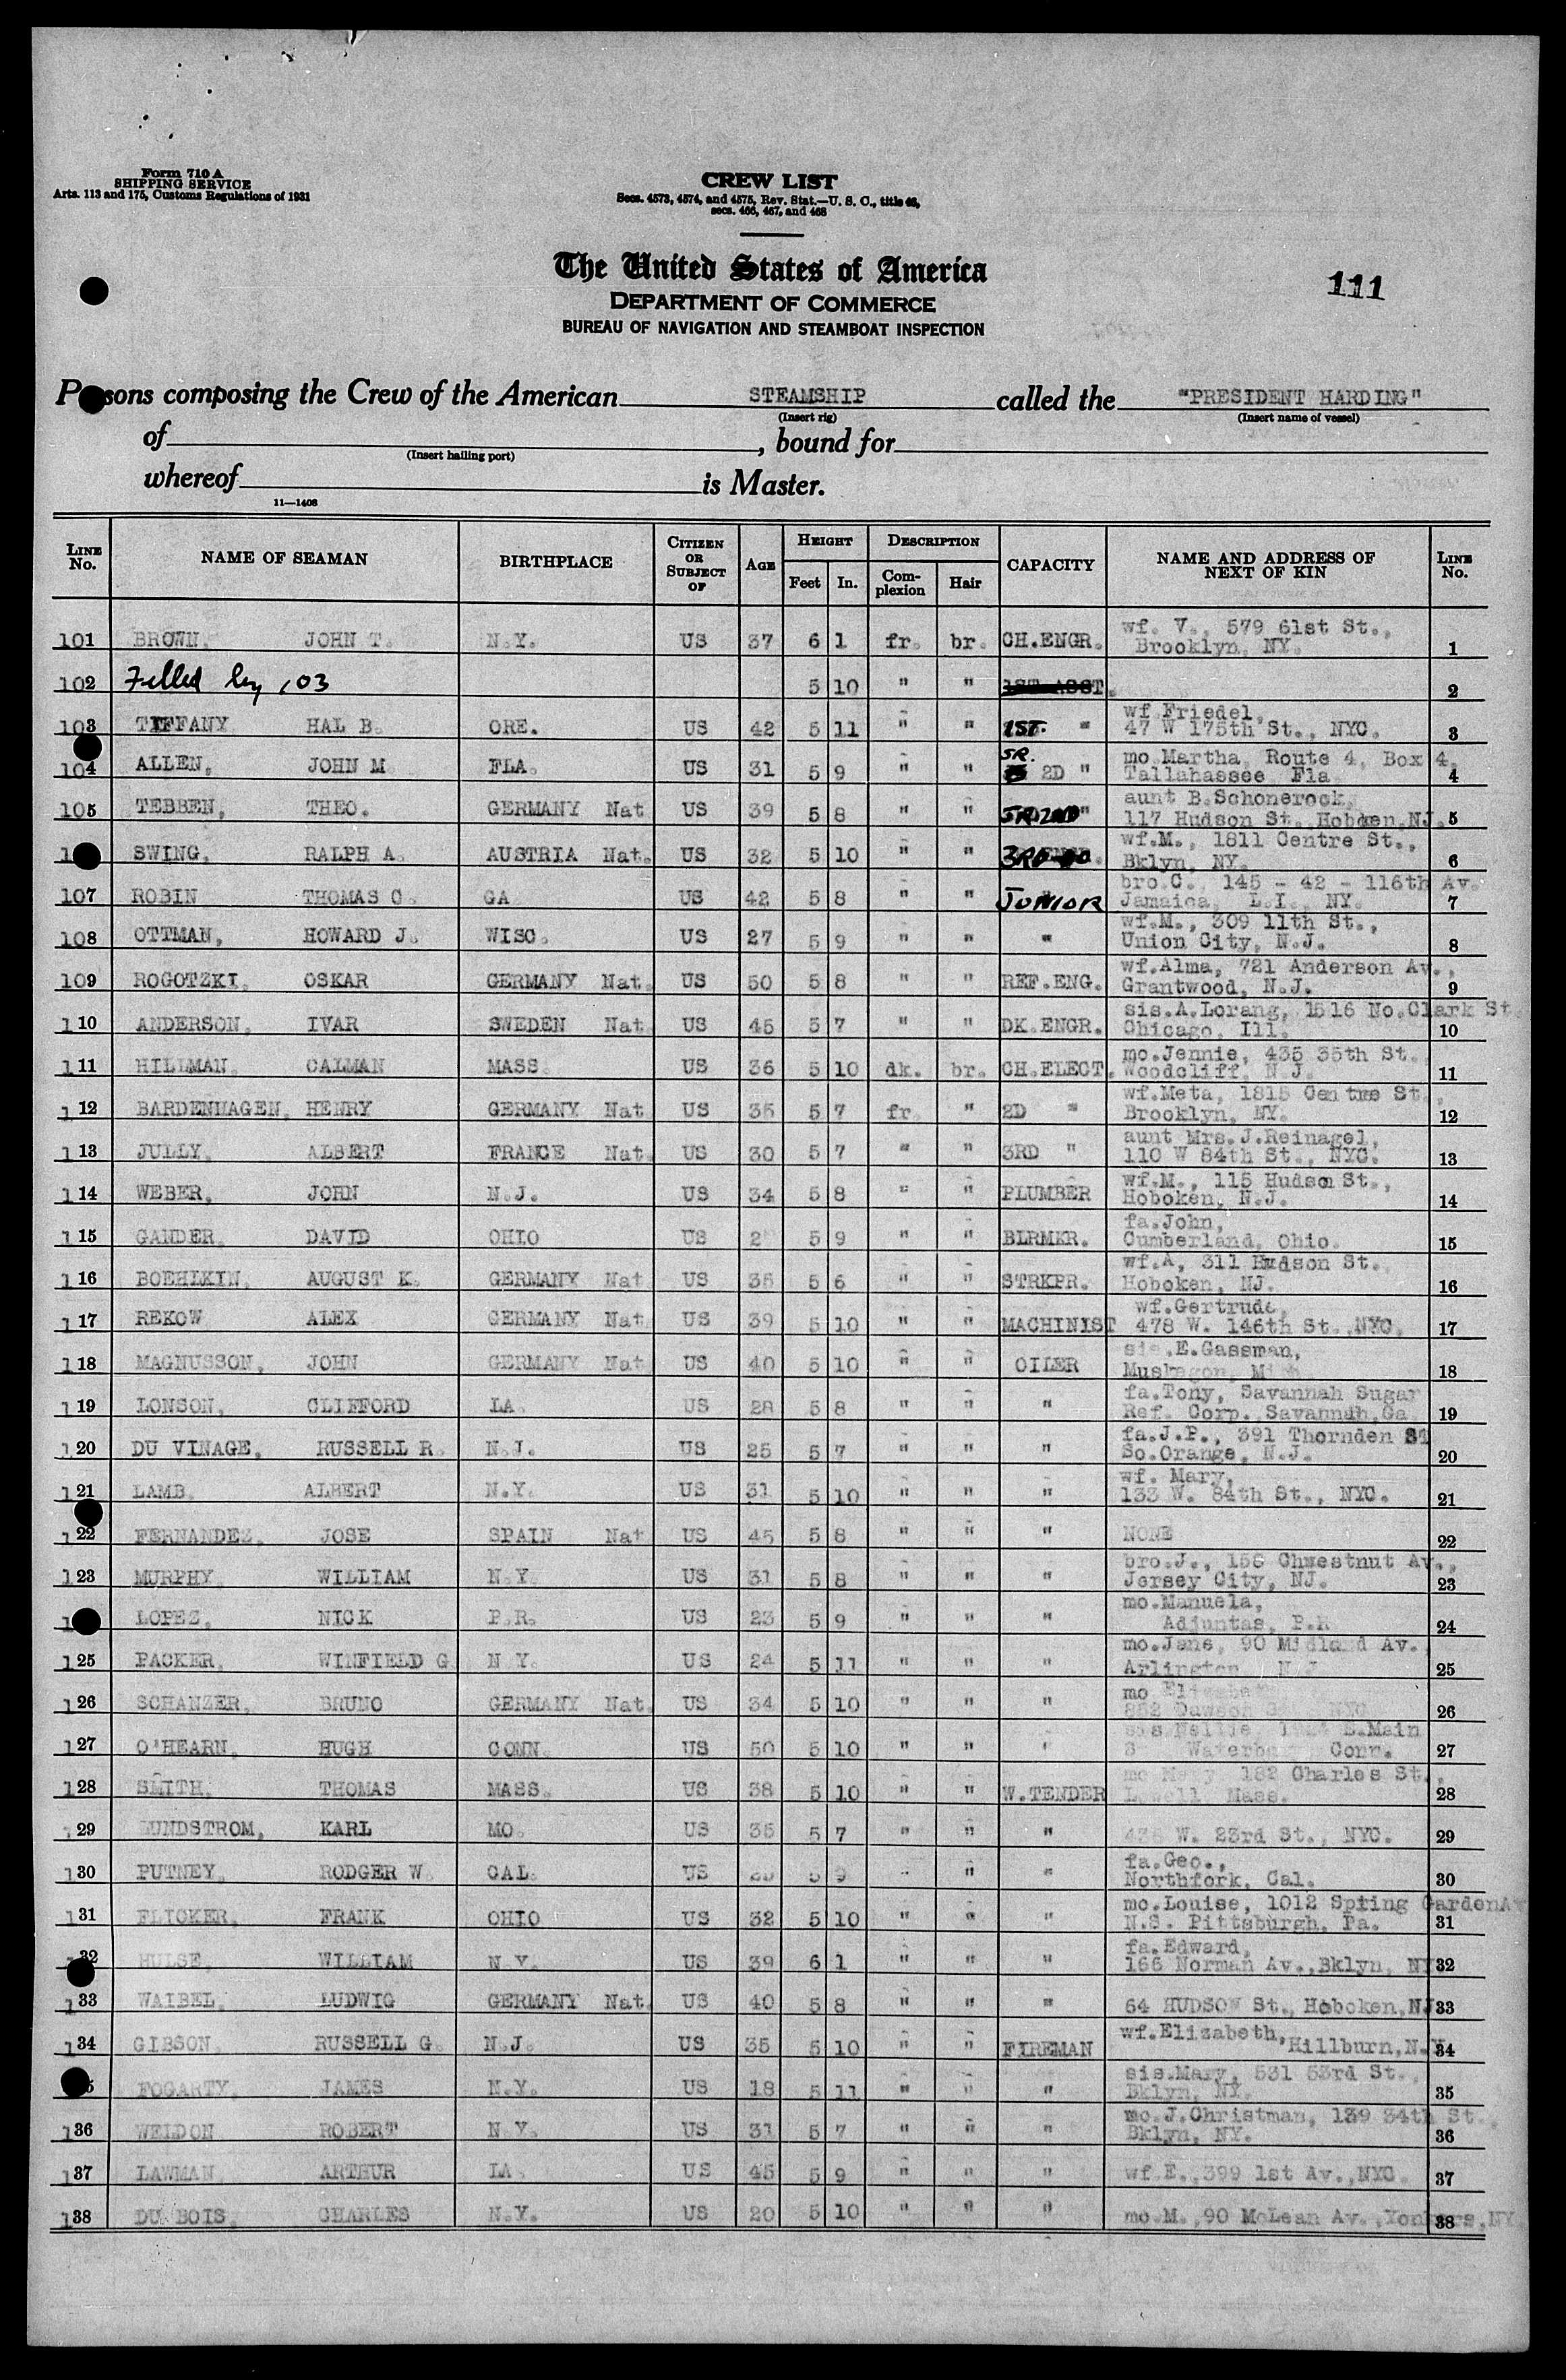 Form 710 A
SHIPPING SERVICE
Arts. 113 and 175, Customs Regulations of 1931
CREW LIST
Secs. 4573, 4574, and 4575, Rev. Stat.—U. S. C., title 46,
secs. 466, 467, and 468
The United States of America
DEPARTMENT OF COMMERCE
BUREAU OF NAVIGATION AND STEAMBOAT INSPECTION
111
Persons composing the Crew of the American STEAMSHIP called the "PRESIDENT HARDING"
(Insert rig) (Insert name of vessel)
of , bound for
(Insert hailing port)
whereof is Master.
11—1408
LINE No. NAME OF SEAMAN BIRTHPLACE CITIZEN OR SUBJECT OF AGE HEIGHT Feet In. DESCRIPTION Complexion Hair CAPACITY NAME AND ADDRESS OF NEXT OF KIN LINE No.
101 BROWN, JOHN T. N.Y. US 37 6 1 fr. br. CH.ENGR. wf. V., 579 61st St., Brooklyn, NY. 1
102 Filled by 103 5 10 " " 1ST ASST. 2
103 TIFFANY HAL B. ORE. US 42 5 11 " " 1ST. " wf Friedel, 47 W 175th St., NYC. 3
104 ALLEN, JOHN M FLA. US 31 5 9 " " SR. 2D " mo Martha, Route 4, Box 4, Tallahassee, Fla 4
105 TEBBEN, THEO. GERMANY Nat US 39 5 8 " " JR 2ND " aunt B.Schonerock, 117 Hudson St. Hobken,NJ. 5
SWING, RALPH A. AUSTRIA Nat. US 32 5 10 " " 3RD wf.M., 1811 Centre St., Bklyn, NY. 6
107 ROBIN THOMAS C. GA US 42 5 8 " " JUNIOR bro.C., 145 - 42 - 116th Av. Jamaica, L.I., NY. 7
108 OTTMAN, HOWARD J. WISC. US 27 5 9 " " " wf.M., 309 11th St., Union City, N.J. 8
109 ROGOTZKI, OSKAR GERMANY Nat. US 50 5 8 " " REF.ENG. wf.Alma, 721 Anderson Av., Grantwood, N.J. 9
110 ANDERSON, IVAR SWEDEN Nat US 45 5 7 " " DK.ENGR. sis.A.Lorang, 1516 No.Clark St. Chicago, Ill. 10
111 HILLMAN, CALMAN MASS. US 36 5 10 dk. br. CH.ELECT. mo.Jennie, 435 35th St., Woodcliff, N.J. 11
112 BARDENHAGEN, HENRY GERMANY Nat US 35 5 7 fr. " 2D " wf.Meta, 1815 Centre St., Brooklyn, NY. 12
113 JULLY, ALBERT FRANCE Nat. US 30 5 7 " " 3RD " aunt Mrs.J.Reinagel, 110 W 84th St., NYC. 13
114 WEBER, JOHN N.J. US 34 5 8 " " PLUMBER wf.M., 115 Hudson St., Hoboken, N.J. 14
115 GANDER, DAVID OHIO US 5 9 " " BLRMKR. fa.John, Cumberland, Ohio. 15
116 BOEHLKIN, AUGUST K. GERMANY Nat US 35 5 6 " " STRKPR. wf.A, 311 Hudson St., Hoboken, NJ. 16
117 REKOW ALEX GERMANY Nat US 39 5 10 " " MACHINIST wf.Gertrude, 478 W. 146th St.,NYC. 17
118 MAGNUSSON, JOHN GERMANY Nat US 40 5 10 " " OILER sis.E.Gassman, Muskegon, Mich 18
119 LONSON, CLIFFORD LA. US 28 5 8 " " " fa.Tony, Savannah Sugar Ref. Corp. Savannah,Ga 19
120 DU VINAGE, RUSSELL R. N.J. US 25 5 7 " " " fa.J.P., 391 Thornden St So.Orange, N.J. 20
121 LAMB, ALBERT N.Y. US 31 5 10 " " " wf. Mary, 133 W. 84th St., NYC. 21
122 FERNANDEZ, JOSE SPAIN Nat US 45 5 8 " " " NONE 22
123 MURPHY, WILLIAM N.Y. US 31 5 8 " " " bro.J., 156 Chwestnut Av., Jersey City, NJ. 23
LOPEZ, NICK P.R. US 23 5 9 " " " mo.Manuela, Adjuntas, P.R 24
125 PACKER, WINFIELD G N.Y. US 24 5 11 " " " mo.Jane, 90 Midland Av. Arlington N J 25
126 SCHANZER, BRUNO GERMANY Nat. US 34 5 10 " " " mo 852 Dawson NYC 26
127 O'HEARN, HUGH CONN. US 50 5 10 " " " sis Nellie, E.Main Conn. 27
128 SMITH, THOMAS MASS. US 38 5 10 " " W.TENDER mo Mary 182 Charles St., Lowell, Mass. 28
129 LUNDSTROM, KARL MO. US 35 5 7 " " " W. 23rd St., NYC. 29
130 PUTNEY, RODGER W. CAL. US 5 9 " " " fa.Geo., Northfork, Cal. 30
131 FLICKER, FRANK OHIO US 32 5 10 " " " mo.Louise, 1012 Spring GardenAv N.S. Pittsburgh, Pa. 31
132 HULSE, WILLIAM N.Y. US 39 6 1 " " " fa.Edward, 166 Norman Av.,Bklyn, NY 32
133 WAIBEL, LUDWIG GERMANY Nat. US 40 5 8 " " " 64 HUDSON St., Hoboken,NJ 33
134 GIBSON RUSSELL G. N.J. US 35 5 10 " " FIREMAN wf.Elizabeth, Hillburn,N.Y. 34
FOGARTY, JAMES N.Y. US 18 5 11 " " " sis.Mary, 531 53rd St., Bklyn, NY. 35
136 WELDON ROBERT N.Y. US 31 5 7 " " " mo.J.Christman, 139 34th St., Bklyn, NY. 36
137 LAWMAN, ARTHUR LA US 45 5 9 " " " wf E.,399 1st Av.,NYC. 37
138 DU BOIS, CHARLES N.Y. US 20 5 10 " " " mo.M.,90 McLean Av.,Yonkers,NY. 38